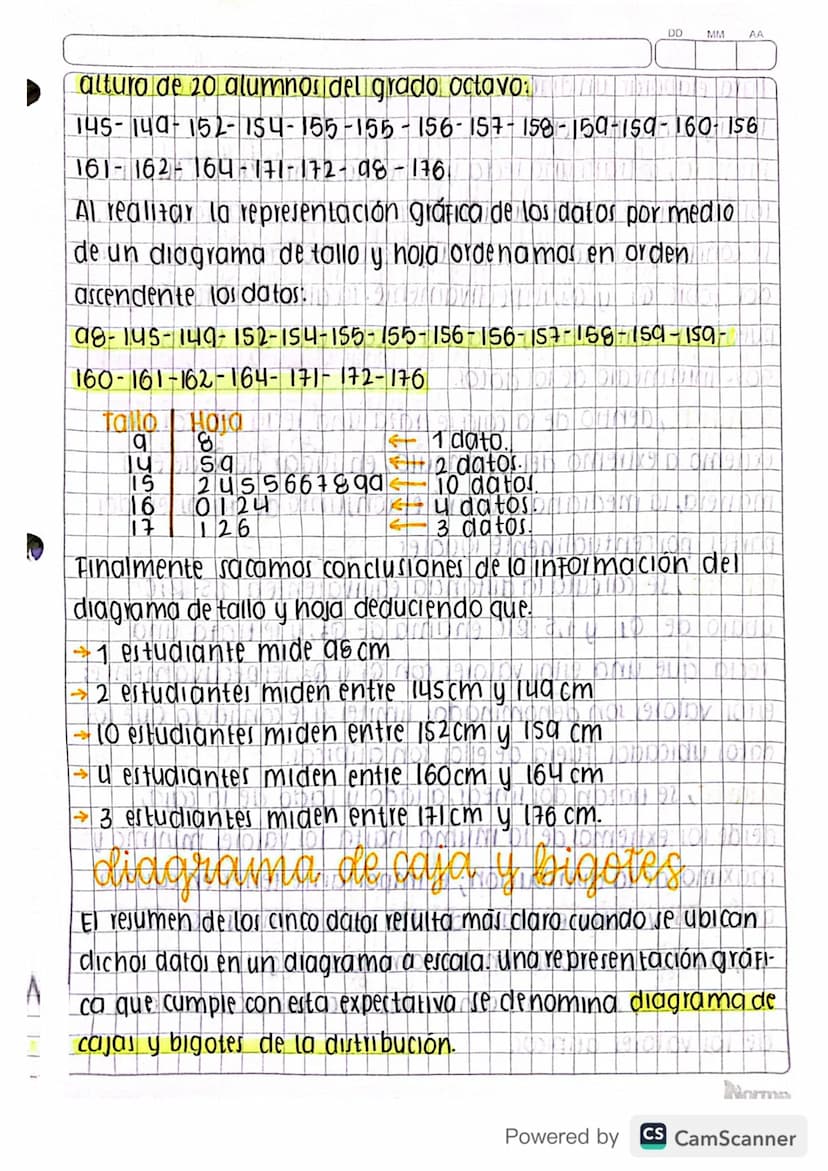 DD MM AA
altura de 20 alumnos del grado octavo:
145-149-152-154-155-155-156-157-158-159-159-160-156
161-162-164-171-172-98-176.
Al realizar la representación gráfica de los datos por medio
de un diagrama de tallo y hoja ordenamos en orden
ascendente los datos:
98-145-149-152-154-155-155-156-156-157-158-159-159-
160-161-162-164-171-172-176
Tallo Hoja
9 8 ← 1 dato.
14 59 ← 2 datos.
15 2455667899 ← 10 datos.
16 0124 ← 4 datos.
17 126 ← 3 datos.
Finalmente sacamos conclusiones de la información del
diagrama de tallo y hoja deduciendo que.
→ 1 estudiante mide 98 cm
→ 2 estudiantes miden entre 145cm y 149cm
→ 10 estudiantes miden entre 152cm y 159 cm
→ 4 estudiantes miden entre 160cm y 164 cm
→ 3 estudiantes miden entre 171cm y 176 cm.
diagrama de caja y bigotes
El resumen de los cinco datos resulta más claro cuando se ubican
dichos datos en un diagrama a escala. una representación gráfi-
ca que cumple con esta expectativa se denomina diagrama de
cajas y bigotes de la distribución.
Norma
Powered by CS CamScanner